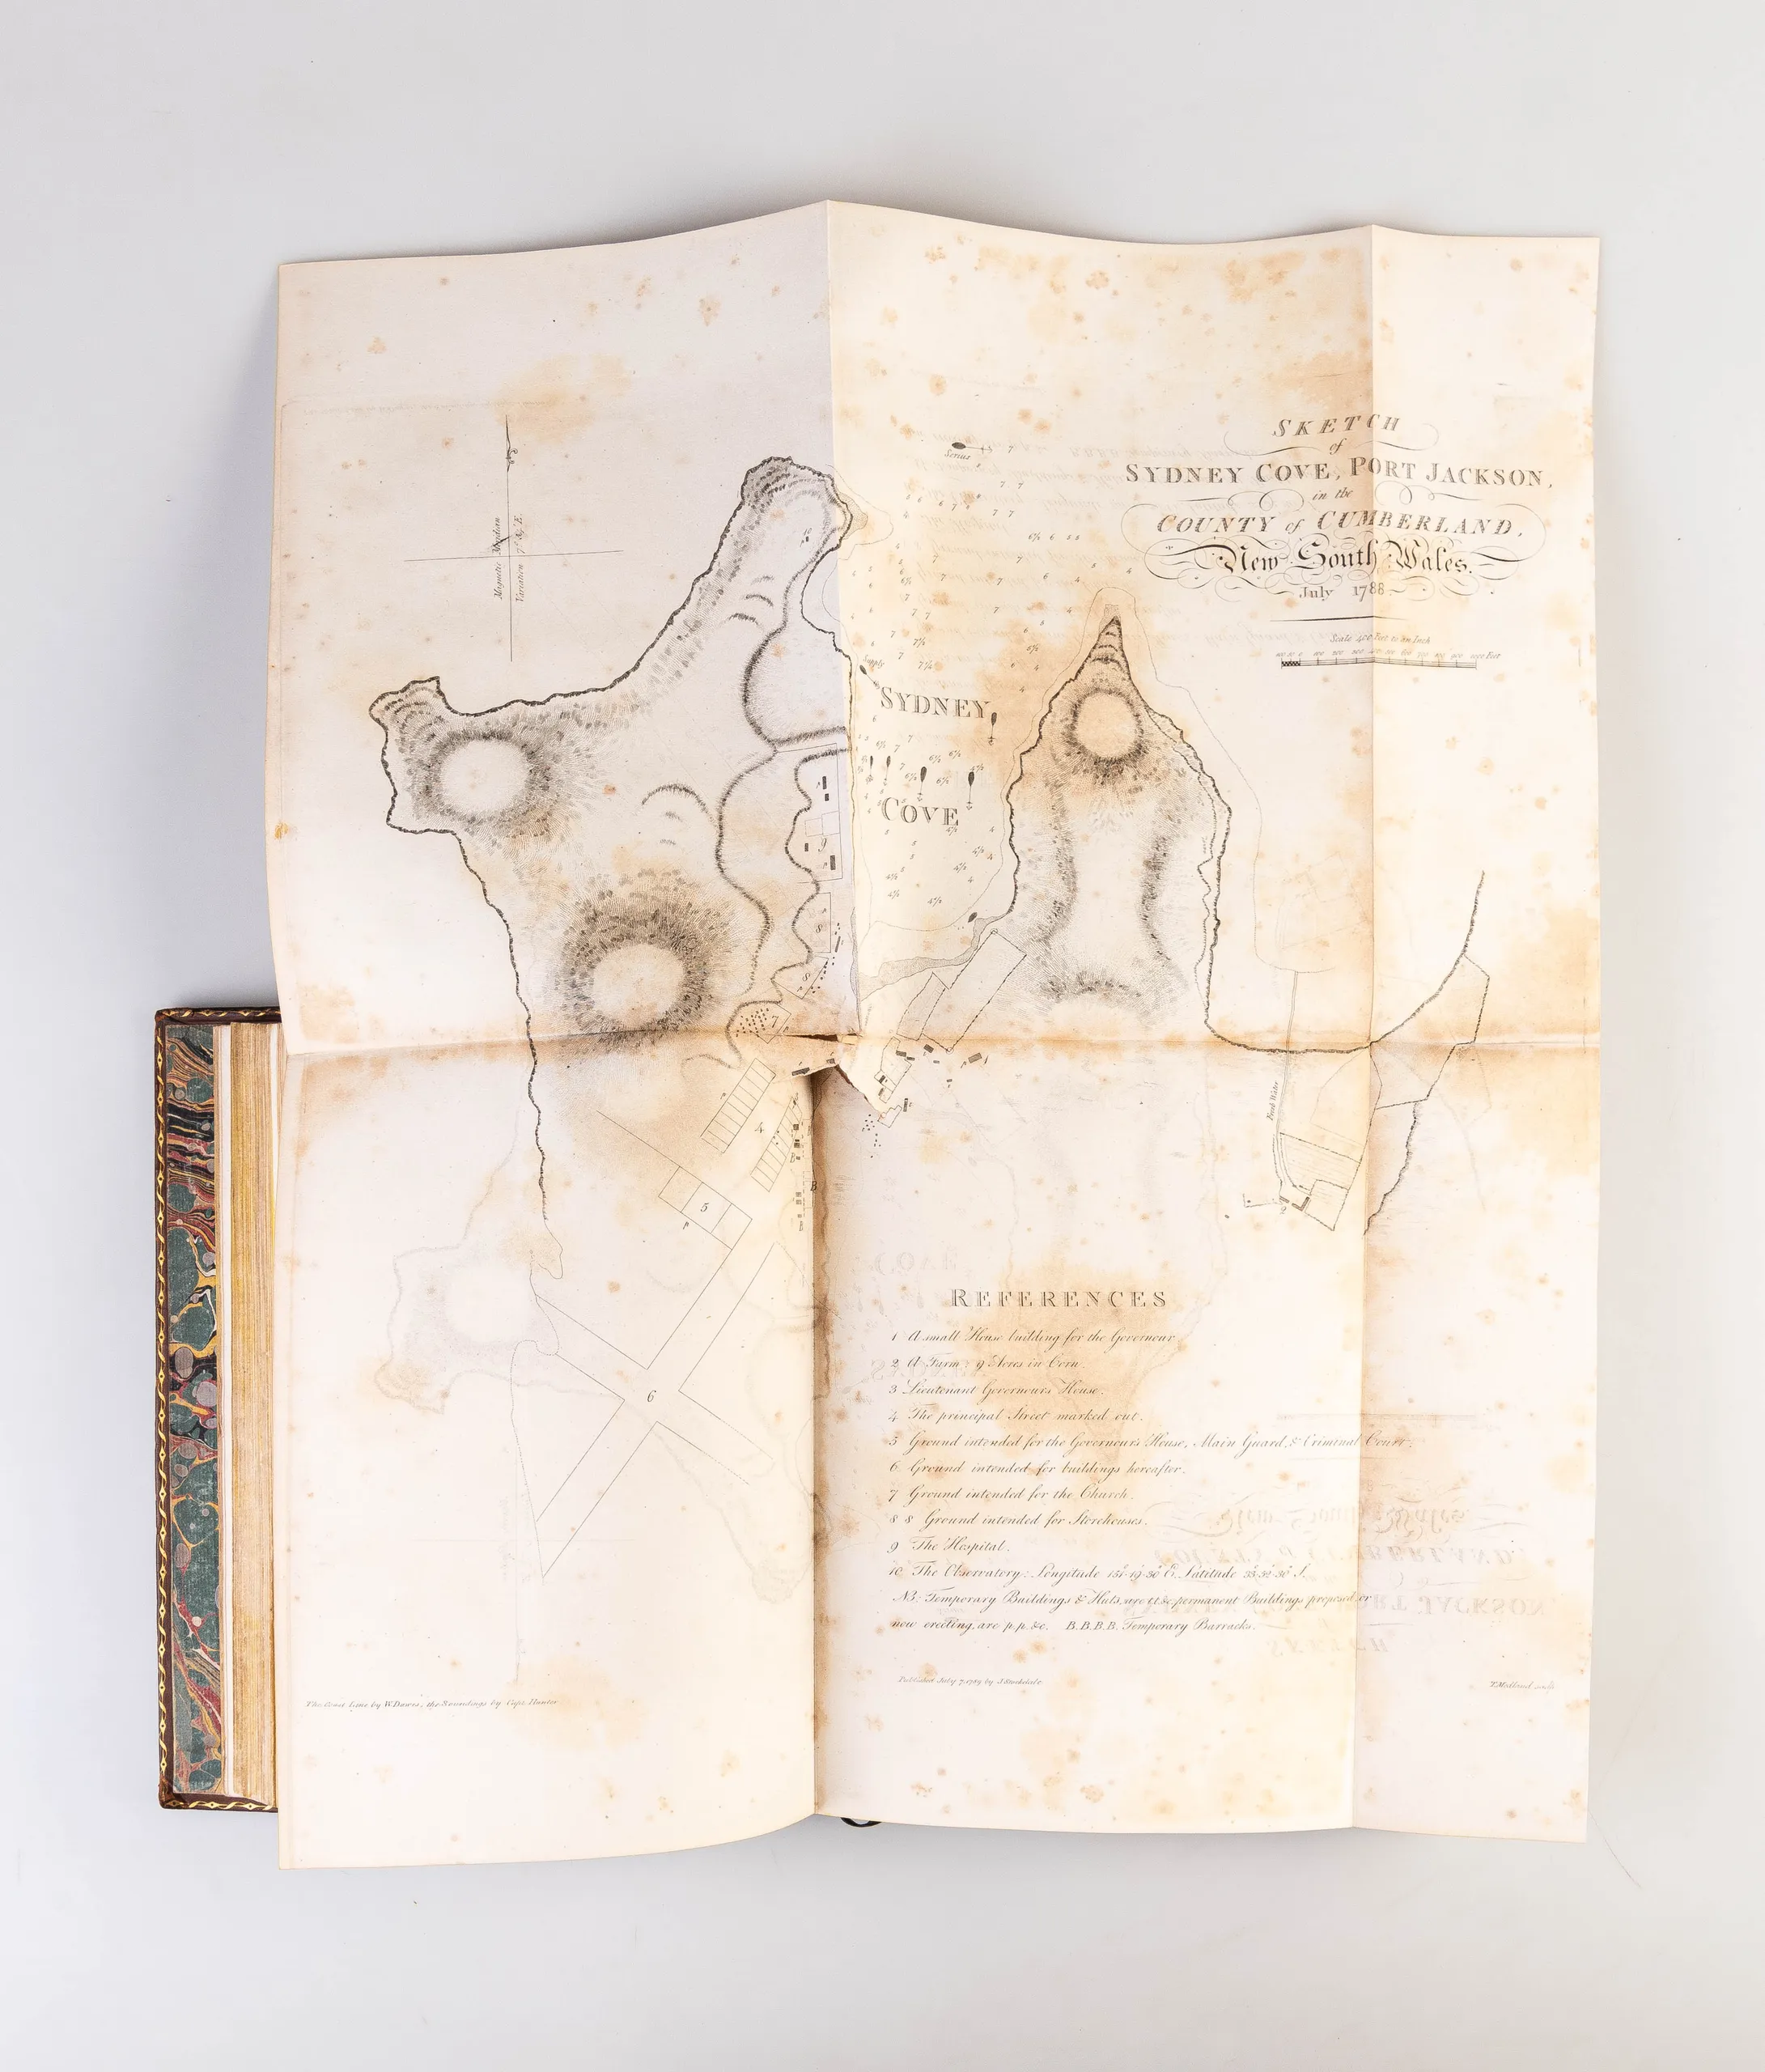 SKETCH
of
SYDNEY COVE, PORT JACKSON,
in the
COUNTY of CUMBERLAND,
New South Wales.
July 1788
Scale 400 Feet to an Inch
Magnetic Meridian
Variation
Sirius
Supply
SYDNEY
COVE
9
8
8
7
4
B
5
6
Fresh Water
REFERENCES
1 A small House building for the Governour
2 A Farm 9 Acres in Corn.
3 Lieutenant Governours House.
4 The principal Street marked out.
5 Ground intended for the Governour's House, Main Guard, & Criminal Court.
6 Ground intended for buildings hereafter.
7 Ground intended for the Church.
8 8 Ground intended for Storehouses.
9 The Hospital.
10 The Observatory: Longitude Latitude
NB. Temporary Buildings & Huts, are permanent Buildings proposed or
now erecting, are p.p. &c. B.B.B.B. Temporary Barracks.
The Coast Line by W. Dawes, the Soundings by Capt. Hunter
Published July 7, 1789 by J. Stockdale
T. Medland sculp.